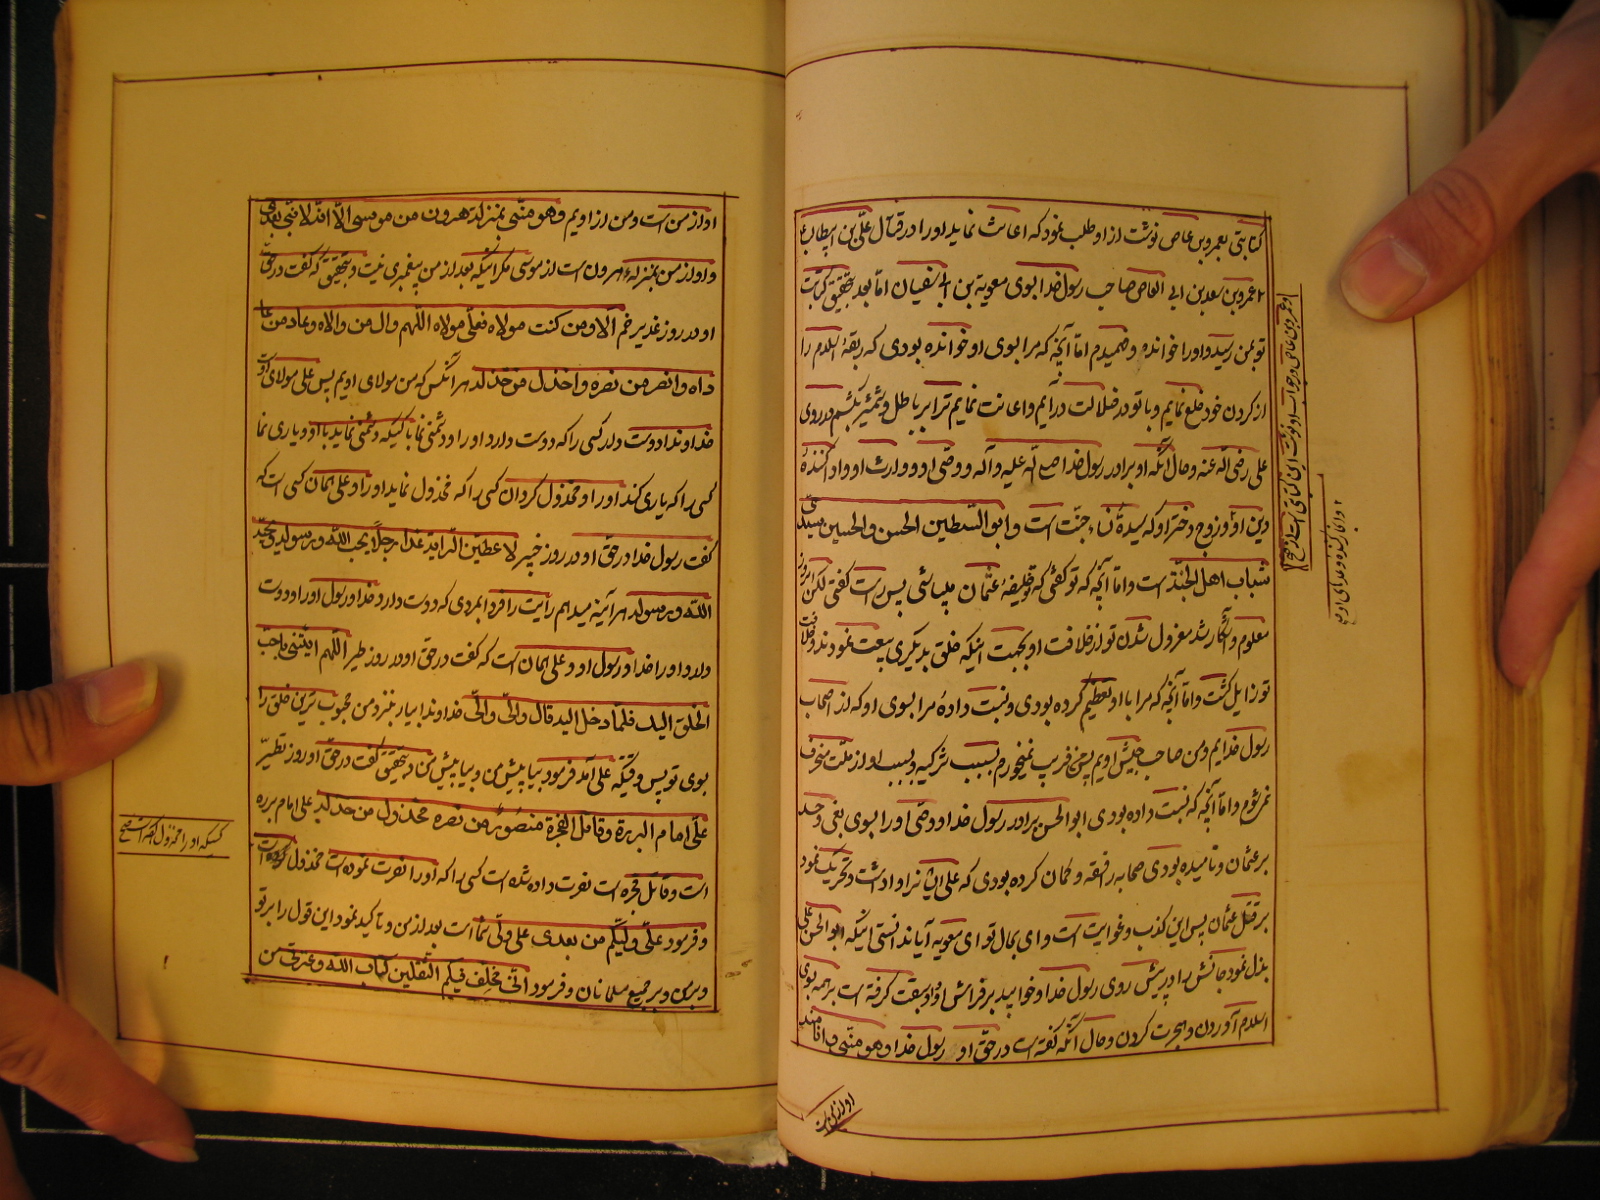 کتابتی بعمرو بن عاص نوشت از او طلب نمود که اعانت نماید او را در قتال علی بن ابیطالب
عمرو بن سعد بن ابی العاص صاحب رسول خدا بسوی معویة بن ابی سفیان اما بعد بتحقیق کتابت
تو بمن رسید و او را خوانده و فهمیدم اما آنچه که مرا بسوی او خوانده بودی که ربقهٔ اسلام را
از کردن خود خلع نمایم و با تو در ضلالت درآیم و اعانت نمایم ترا بر باطل و شمشیر بکشم در روی
علی رضی الله عنه و حال آنکه او برادر رسول خدا صلی الله علیه و آله و وصی او و وارث او و ادا کنندهٔ
دین او و زوج دختر او که سیدهٔ نساء جنت است و ابو السبطین الحسن و الحسین سیدی
شباب اهل الجنة است و اما آنچه که تو گفتی که تو خلیفهٔ عثمان میباشی پس راست گفتی لکن امروز
معلوم و آشکار شد معزول شدن تو از خلافت او بجهت اینکه خلق بدیگری بیعت نمودند و خلافت
تو زایل گشت و اما آنچه که مرا با او تعظیم کرده بودی و نسبت دادهٔ مرا بسوی او که از اصحاب
رسول خدایم و من صاحب جیش اویم پس فریب نمیخورم بسبب تزکیه و بسبب او از ملت منحرف
نمیشوم و اما آنچه که نسبت داده بودی ابو الحسن برادر رسول خدا و وصی او را بسوی بغی و حسد
بر عثمان و نامیده بودی صحابه را فسقه و گمان کرده بودی که علی ایشانرا واداشت و تحریک نمود
بر قتل عثمان پس این کذب و غوایت است وای بحال تو ای معویه آیا ندانستی اینکه ابو الحسن علی
بذل نمود جانش را در پیش روی رسول خدا و خوابید بر فراش او و او سبقت گرفته است بر همه بسوی
اسلام آوردن و هجرت کردن و حال آنکه گفته است در حق او رسول خدا و هو منی و انا منه
او از من است
و عمرو بن عاص در جواب او نوشت این کتابتی است از
و وفا کننده وعدهای او صح
او از من است و من از اویم و هو منی بمنزلة هرون من موسی الا انه لا نبی بعدی
و او از من بمنزلهٔ هرون است از موسی مگر اینکه بعد از من پیغمبری نیست و بتحقیق که گفت در حق
او در روز غدیر خم الا و من کنت مولاه فعلی مولاه اللهم وال من والاه و عاد من عا
داه و انصر من نصره و اخذل من خذله هر آنکس که من مولای اویم پس علی مولای اوست
خداوندا دوست دار کسی را که دوست دارد او را و دشمنی نما با کسیکه دشمنی نماید با او و یاری نما
کسی را که یاری کند او را و مخذول گردان کسی را که مخذول نماید او را و علی همان کسی است که
گفت رسول خدا در حق او در روز خیبر لاعطین الرایة غدا رجلا یحب الله و رسوله و یحبه
الله و رسوله هر آینه میدهم رایت را فردا بمردی که دوست دارد خدا و رسول او را و دوست
دارد او را خدا و رسول او و علی همان است که گفت در حق او در روز طیر اللهم ایتنی باحب
الخلق الیک فلما دخل الیه قال والی والی خداوندا بیار بنزد من محبوب ترین خلق را
بسوی تو پس وقتیکه علی آمد فرمود بیا پیش من و بیا پیش من و بتحقیق گفت در حق او روز نضیر
علی امام البررة و قاتل الفجرة منصور من نصره مخذول من خذله علی امام برره
است و قاتل فجره است نصرت داده شده است کسی را که او را نصرت نموده است مخذول کرده است
و فرمود علی ولیکم من بعدی علی ولی شما است بعد از من و تأکید نمود این قول را بر تو
و بر من و بر جمیع مسلمانان و فرمود انی مخلف فیکم الثقلین کتاب الله و عترتی من
کسیکه او را مخذول کرده است صح